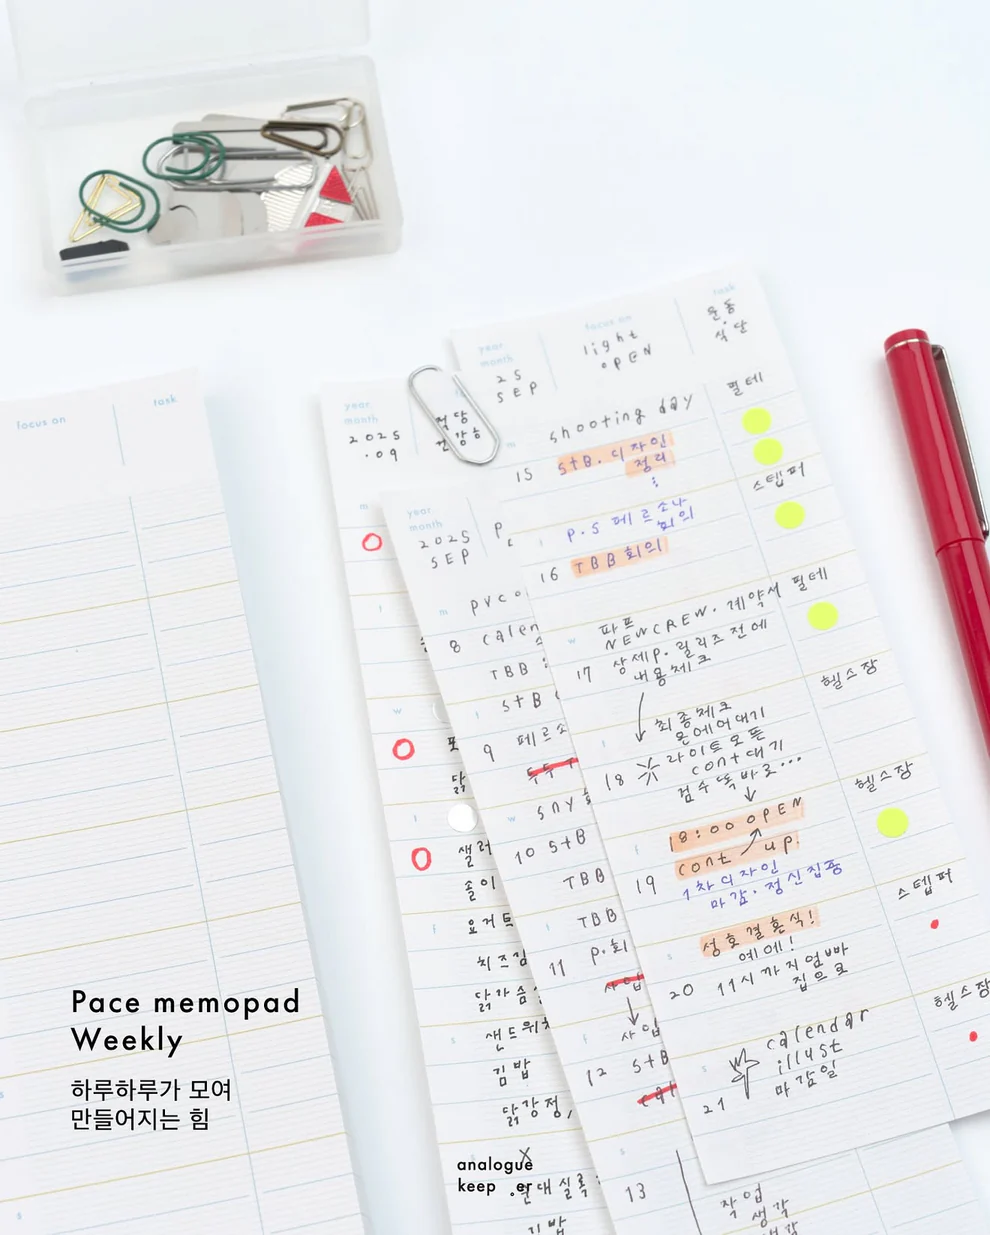 focus on
task
year
month
2025
.09
적당
건강히
m
t
w
t
f
s
s
샐러
솥이
요거트
치즈김
닭가슴
샌드위치
김밥
닭강정,
김밥
year
month
2025
SEP
m
8
pvc
calen
TBB
t
9
StB
페르소
w
10
StB
TBB
t
11
TBB
p.회
f
12
사업
StB
s
13
작업
생각
생각
year
month
25
SEP
focus on
light
OPEN
task
운동
식단
m
15
shooting day
StB. 디자인
정리
필테
t
16
P.S 페르소나
회의
TBB 회의
스텝퍼
w
17
파프
NEWCREW. 계약서
상세P. 릴리즈 전에
내용체크
필테
t
18
최종체크
온에어대기
라이트오픈
cont대기
검수 똑바로...
헬스장
f
19
18:00 OPEN
cont up!
1차디자인
마감.정신집중
헬스장
s
20
성호결혼식!
예에!
11시까지 엄빠
집으로
스텝퍼
s
21
calendar
illust
마감일
헬스장
Pace memopad
Weekly
하루하루가 모여
만들어지는 힘
analogue
keeper